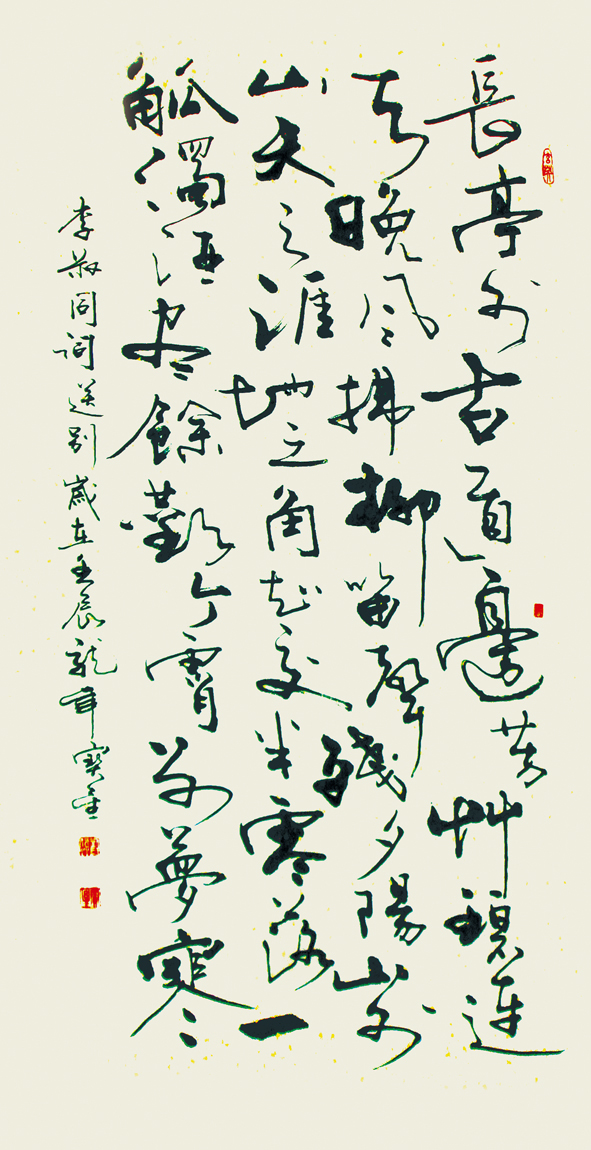 長亭外古道邊芳艸碧連
天晚風拂柳笛聲殘夕陽山外
山天之涯地之角知交半零落一
觚濁酒盡餘歡今宵別夢寒
李叔同詞送別歲在壬辰龍年寶